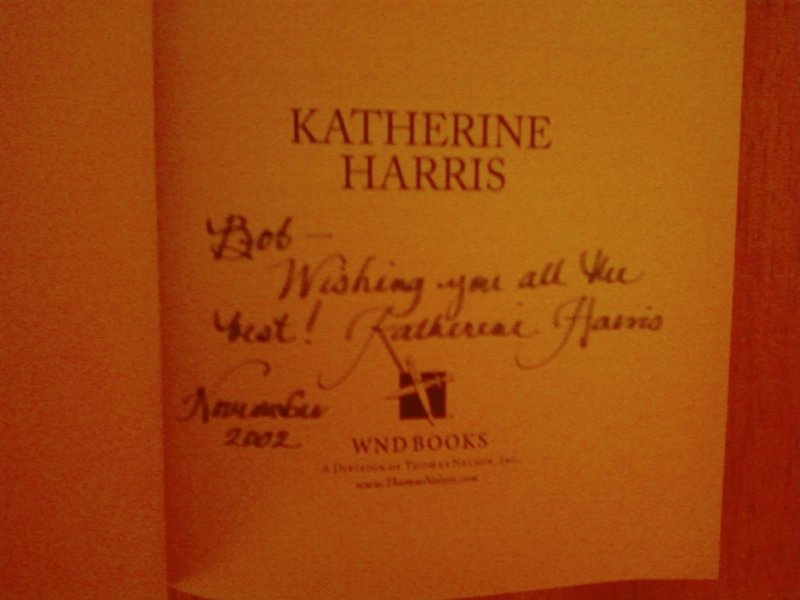 KATHERINE
HARRIS
Bob—
Wishing you all the
best! Katherine Harris
November
2002
WND BOOKS
A DIVISION OF THOMAS NELSON, INC.
www.ThomasNelson.com